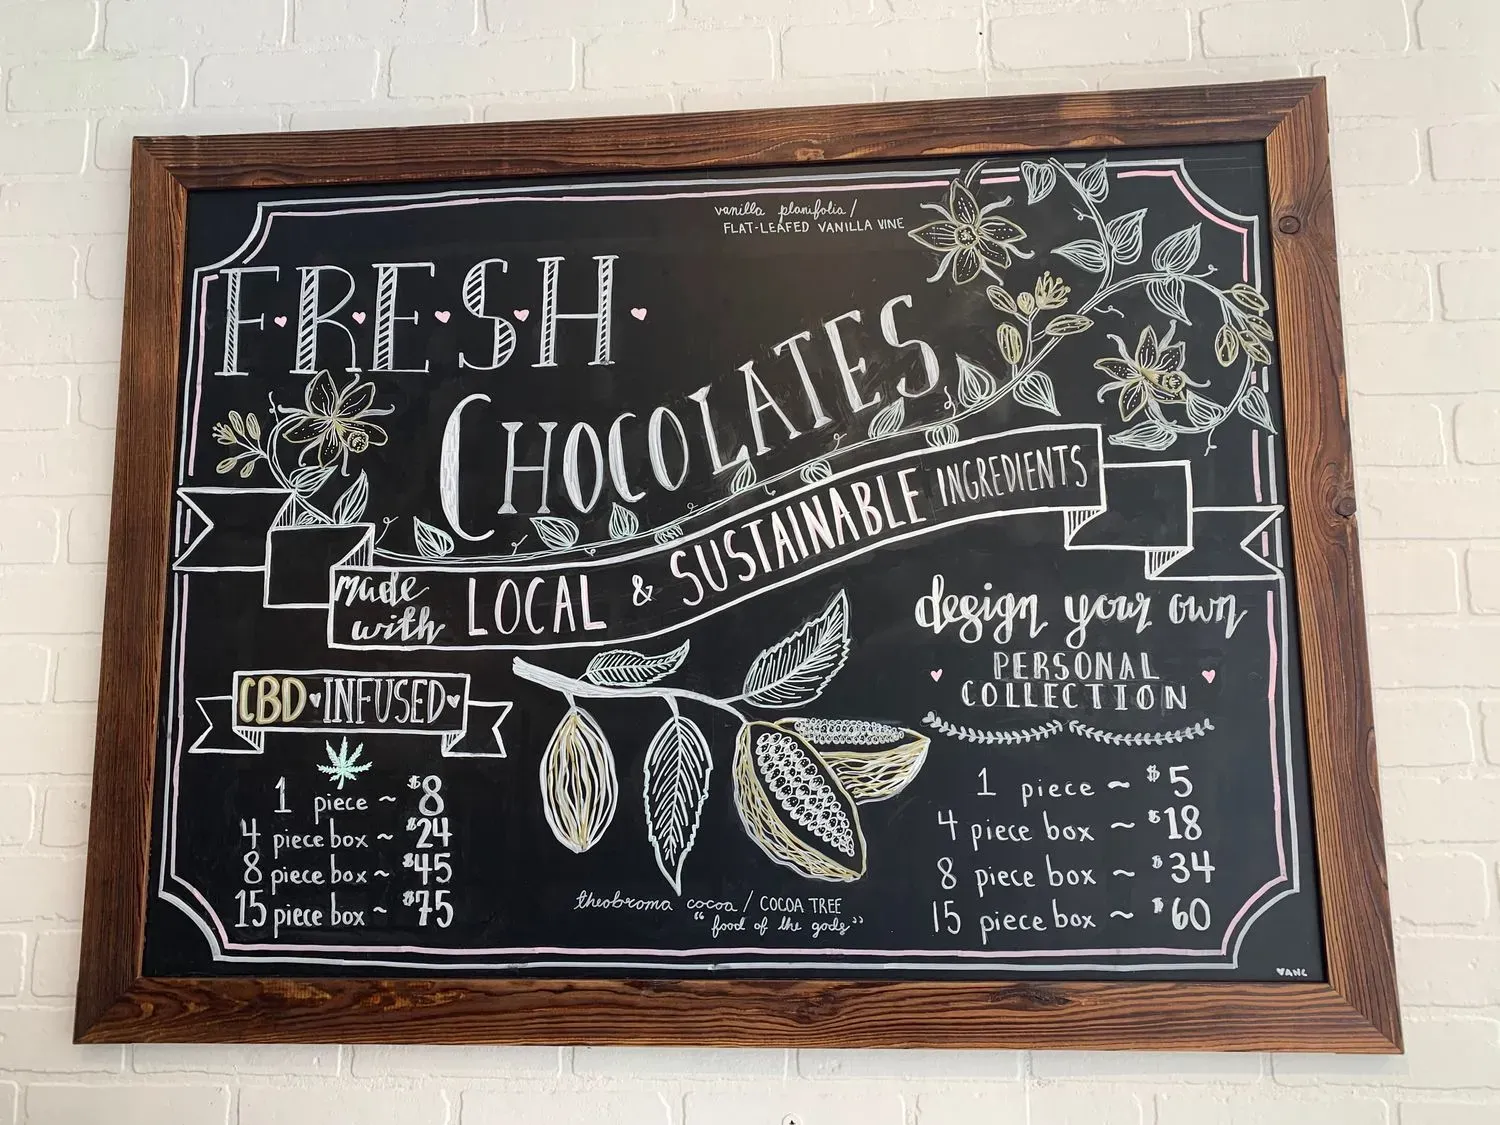 vanilla planifolia /
FLAT-LEAFED VANILLA VINE
FRESH
CHOCOLATES
made with LOCAL & SUSTAINABLE INGREDIENTS
CBD INFUSED
1 piece ~ $8
4 piece box ~ $24
8 piece box ~ $45
15 piece box ~ $75
theobroma cocoa / COCOA TREE
"food of the gods"
design your own
PERSONAL
COLLECTION
1 piece ~ $5
4 piece box ~ $18
8 piece box ~ $34
15 piece box ~ $60